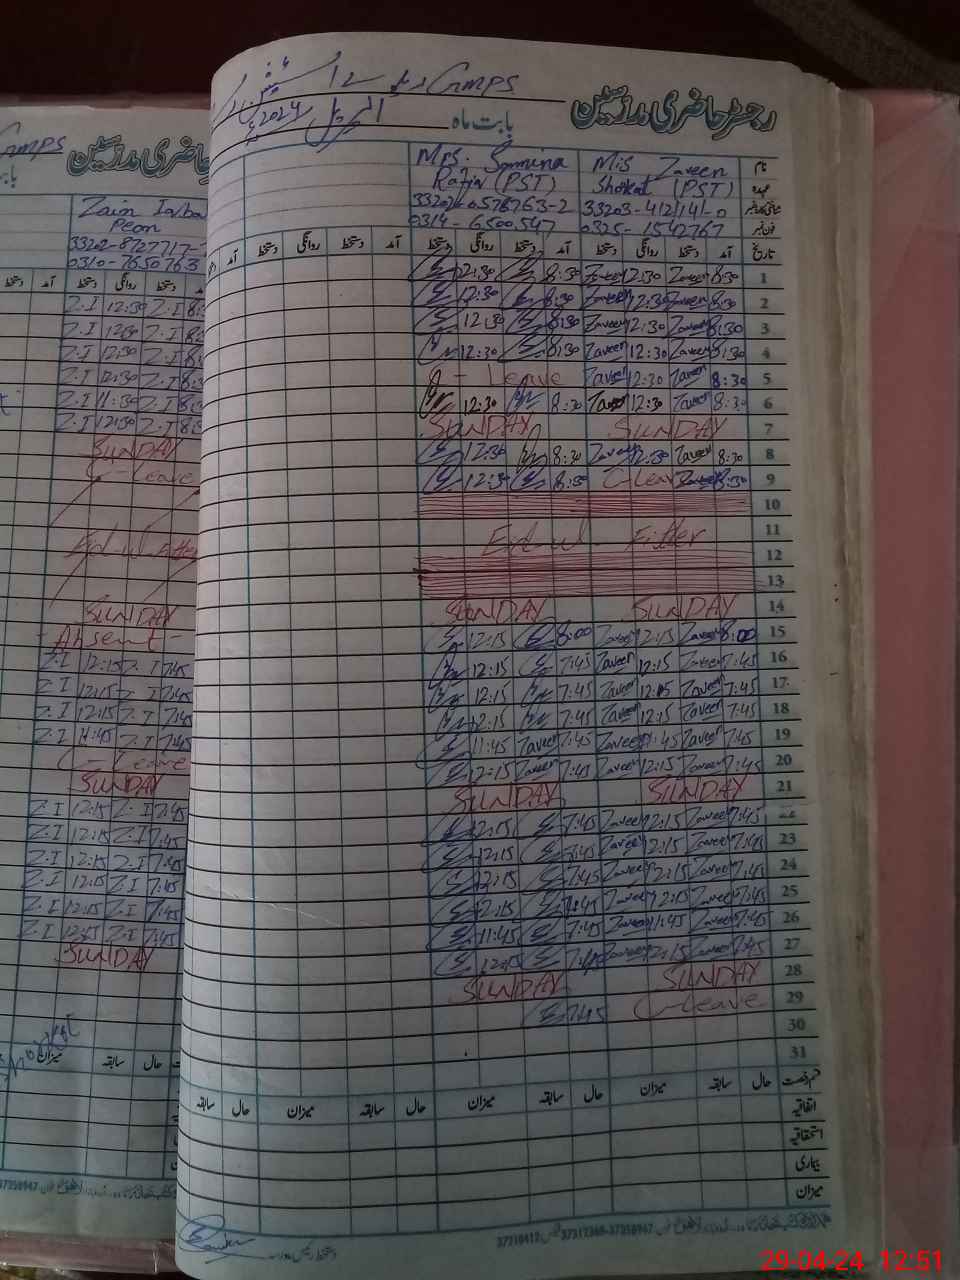 GMPS
رجسٹر حاضری مدرسین
بابت ماہ اپریل 2024ء
نام Mis Zaveen Mrs. Samina
عہدہ Shokat (PST) Rafiq (PST)
33203-4121141-0 33202-0578763-2
فون نمبر 0325-1542767 0314-6500547
تاریخ آمد دستخط روانگی دستخط آمد دستخط روانگی دستخط آمد دستخط روانگی دستخط آمد
1 8:30 Zaveen 12:30 Zaveen 8:30 2:30
2 8:30 Zaveen 12:30 Zaveen 8:30 12:30
3 8:30 Zaveen 12:30 Zaveen 8:30 12:30
4 8:30 Zaveen 12:30 Zaveen 8:30 12:30
5 8:30 Zaveen 12:30 Zaveen Leave
6 8:30 Zaveen 12:30 Zaveen 8:30 12:30
7 SUNDAY SUNDAY
8 8:30 Zaveen 12:30 Zaveen 8:30 12:30
9 8:30 Zaveen C-Leave 8:30 12:30
10
11 Eid-ul-Fitter
12
13
14 SUNDAY SUNDAY
15 8:00 Zaveen 12:15 Zaveen 8:00 12:15
16 7:45 Zaveen 12:15 Zaveen 7:45 12:15
17 7:45 Zaveen 12:15 Zaveen 7:45 12:15
18 7:45 Zaveen 12:15 Zaveen 7:45 12:15
19 7:45 Zaveen 11:45 Zaveen 7:45 Zaveen 11:45
20 7:45 Zaveen 12:15 Zaveen 7:45 Zaveen 12:15
21 SUNDAY SUNDAY
7:45 Zaveen 12:15 Zaveen 7:45 12:15
23 7:45 Zaveen 12:15 Zaveen 7:45 12:15
24 7:45 Zaveen 12:15 Zaveen 7:45 12:15
25 7:45 Zaveen 12:15 Zaveen 7:45 12:15
26 7:45 Zaveen 11:45 Zaveen 7:45 11:45
27 7:45 Zaveen 12:15 Zaveen 12:15
28 SUNDAY SUNDAY
29 C-Leave 7:45
30
31
قسم رخصت حال سابقہ میزان حال سابقہ میزان حال سابقہ میزان حال سابقہ
اتفاقیہ
استحقاقیہ
بیماری
میزان
GMPS
حاضری مدرسین
Zain Iqba
Peon
33202-8727717-
0310-7650763
دستخط روانگی دستخط آمد
Z.I 12:30 Z.I 8:
Z.I 12:30 Z.I 8:
Z.I 12:30 Z.I 8:
Z.I 12:30 Z.I 8:3
Z.I 11:30 Z.I 8:3
Z.I 12:30 Z.I 8:3
SUNDAY
C-Leave
Eid-ul-Fitter
SUNDAY
-Absent-
Z.I 12:15 Z.I 7:45
Z.I 12:15 Z.I 7:45
Z.I 12:15 Z.I 7:45
Z.I 11:45 Z.I 7:45
C-Leave
SUNDAY
Z.I 12:15 Z.I 7:45
Z.I 12:15 Z.I 7:45
Z.I 12:15 Z.I 7:45
Z.I 12:15 Z.I 7:45
Z.I 12:15 Z.I 7:45
Z.I 12:45 Z.I 7:45
SUNDAY
حال سابقہ میزان
29-04-24 12:51